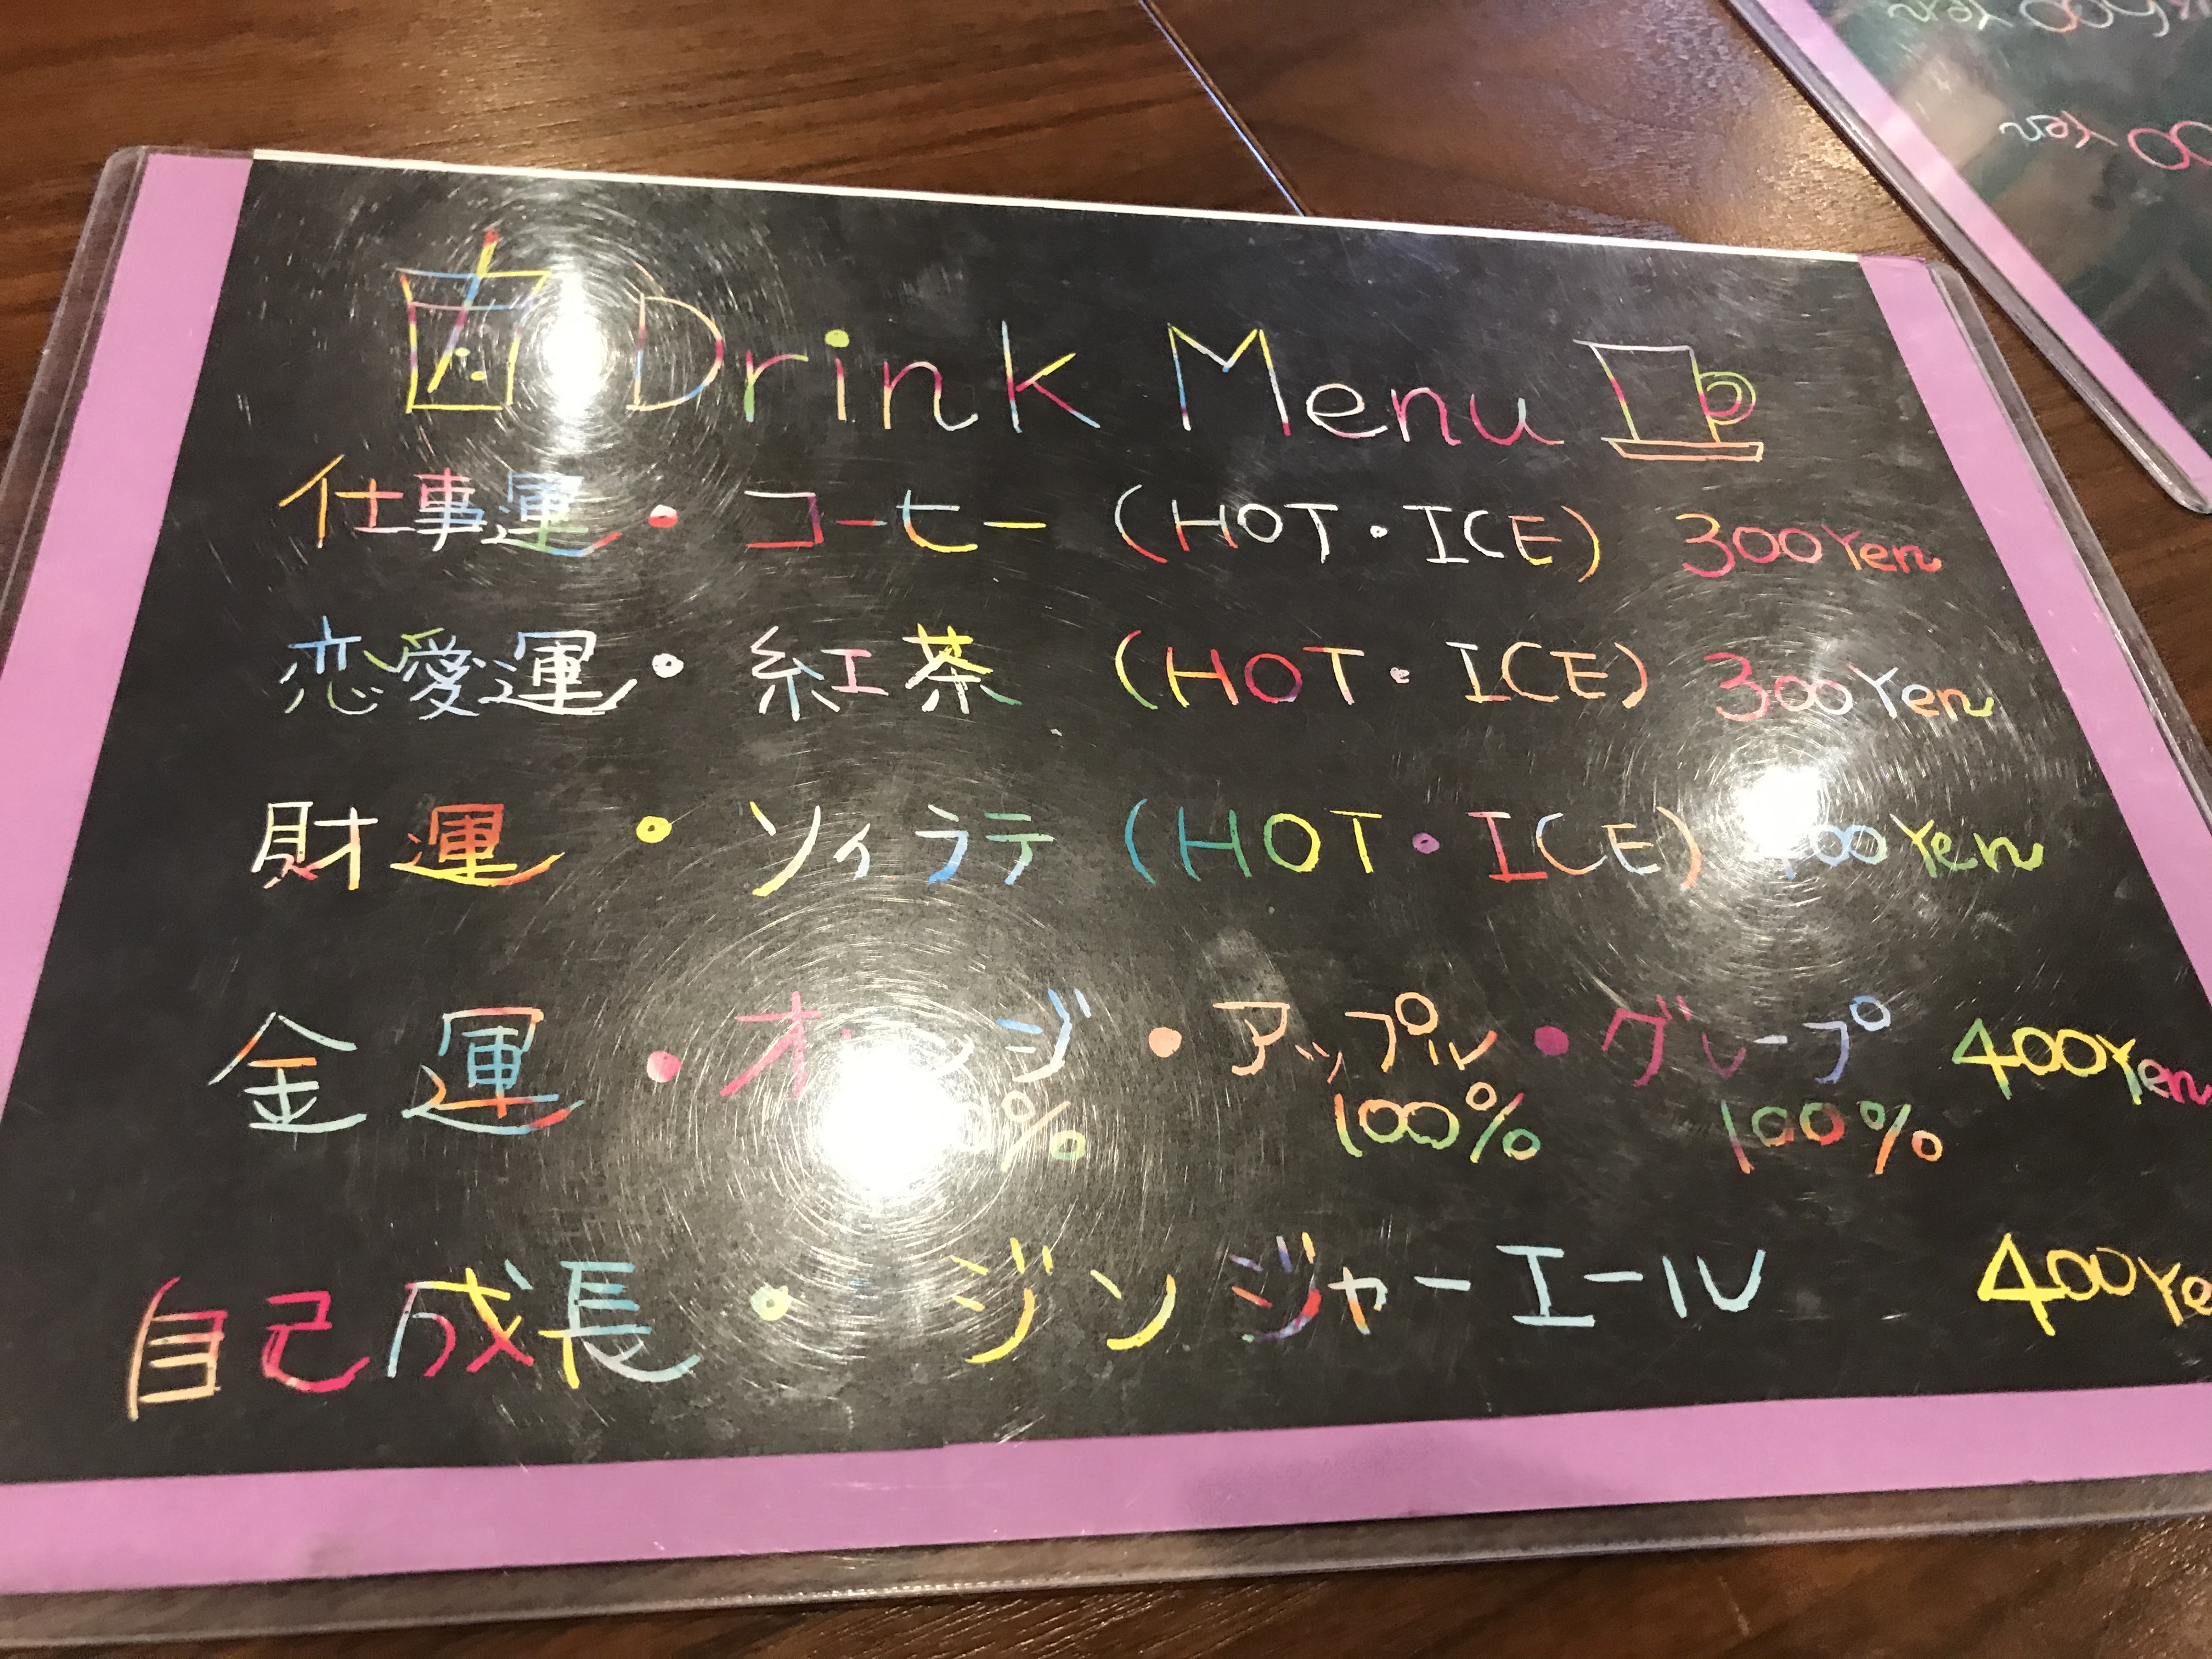 Drink Menu
仕事運・コーヒー (HOT・ICE) 300Yen
恋愛運・紅茶 (HOT・ICE) 300Yen
財運・ソイラテ (HOT・ICE) 00Yen
金運・オ ンジ・アップル・グレープ 400Yen
0% 100% 100%
自己成長・ジンジャーエール 400Ye
00Yen